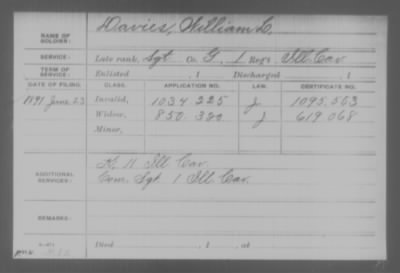 NAME OF SOLDIER: Davies, William L.
SERVICE: Late rank, Sgt Co. G, 1 Reg't Ill. Cav.
TERM OF SERVICE: Enlisted , 1 Discharged , 1
DATE OF FILING. CLASS. APPLICATION NO. LAW. CERTIFICATE NO.
1891 June 23 Invalid, 1034 225 J 1095.563
Widow, 850.380 J 619068
Minor,
ADDITIONAL SERVICES: K. 11 Ill Cav.
Com. Sgt 1 Ill. Cav.
REMARKS:
Died , 1 , at